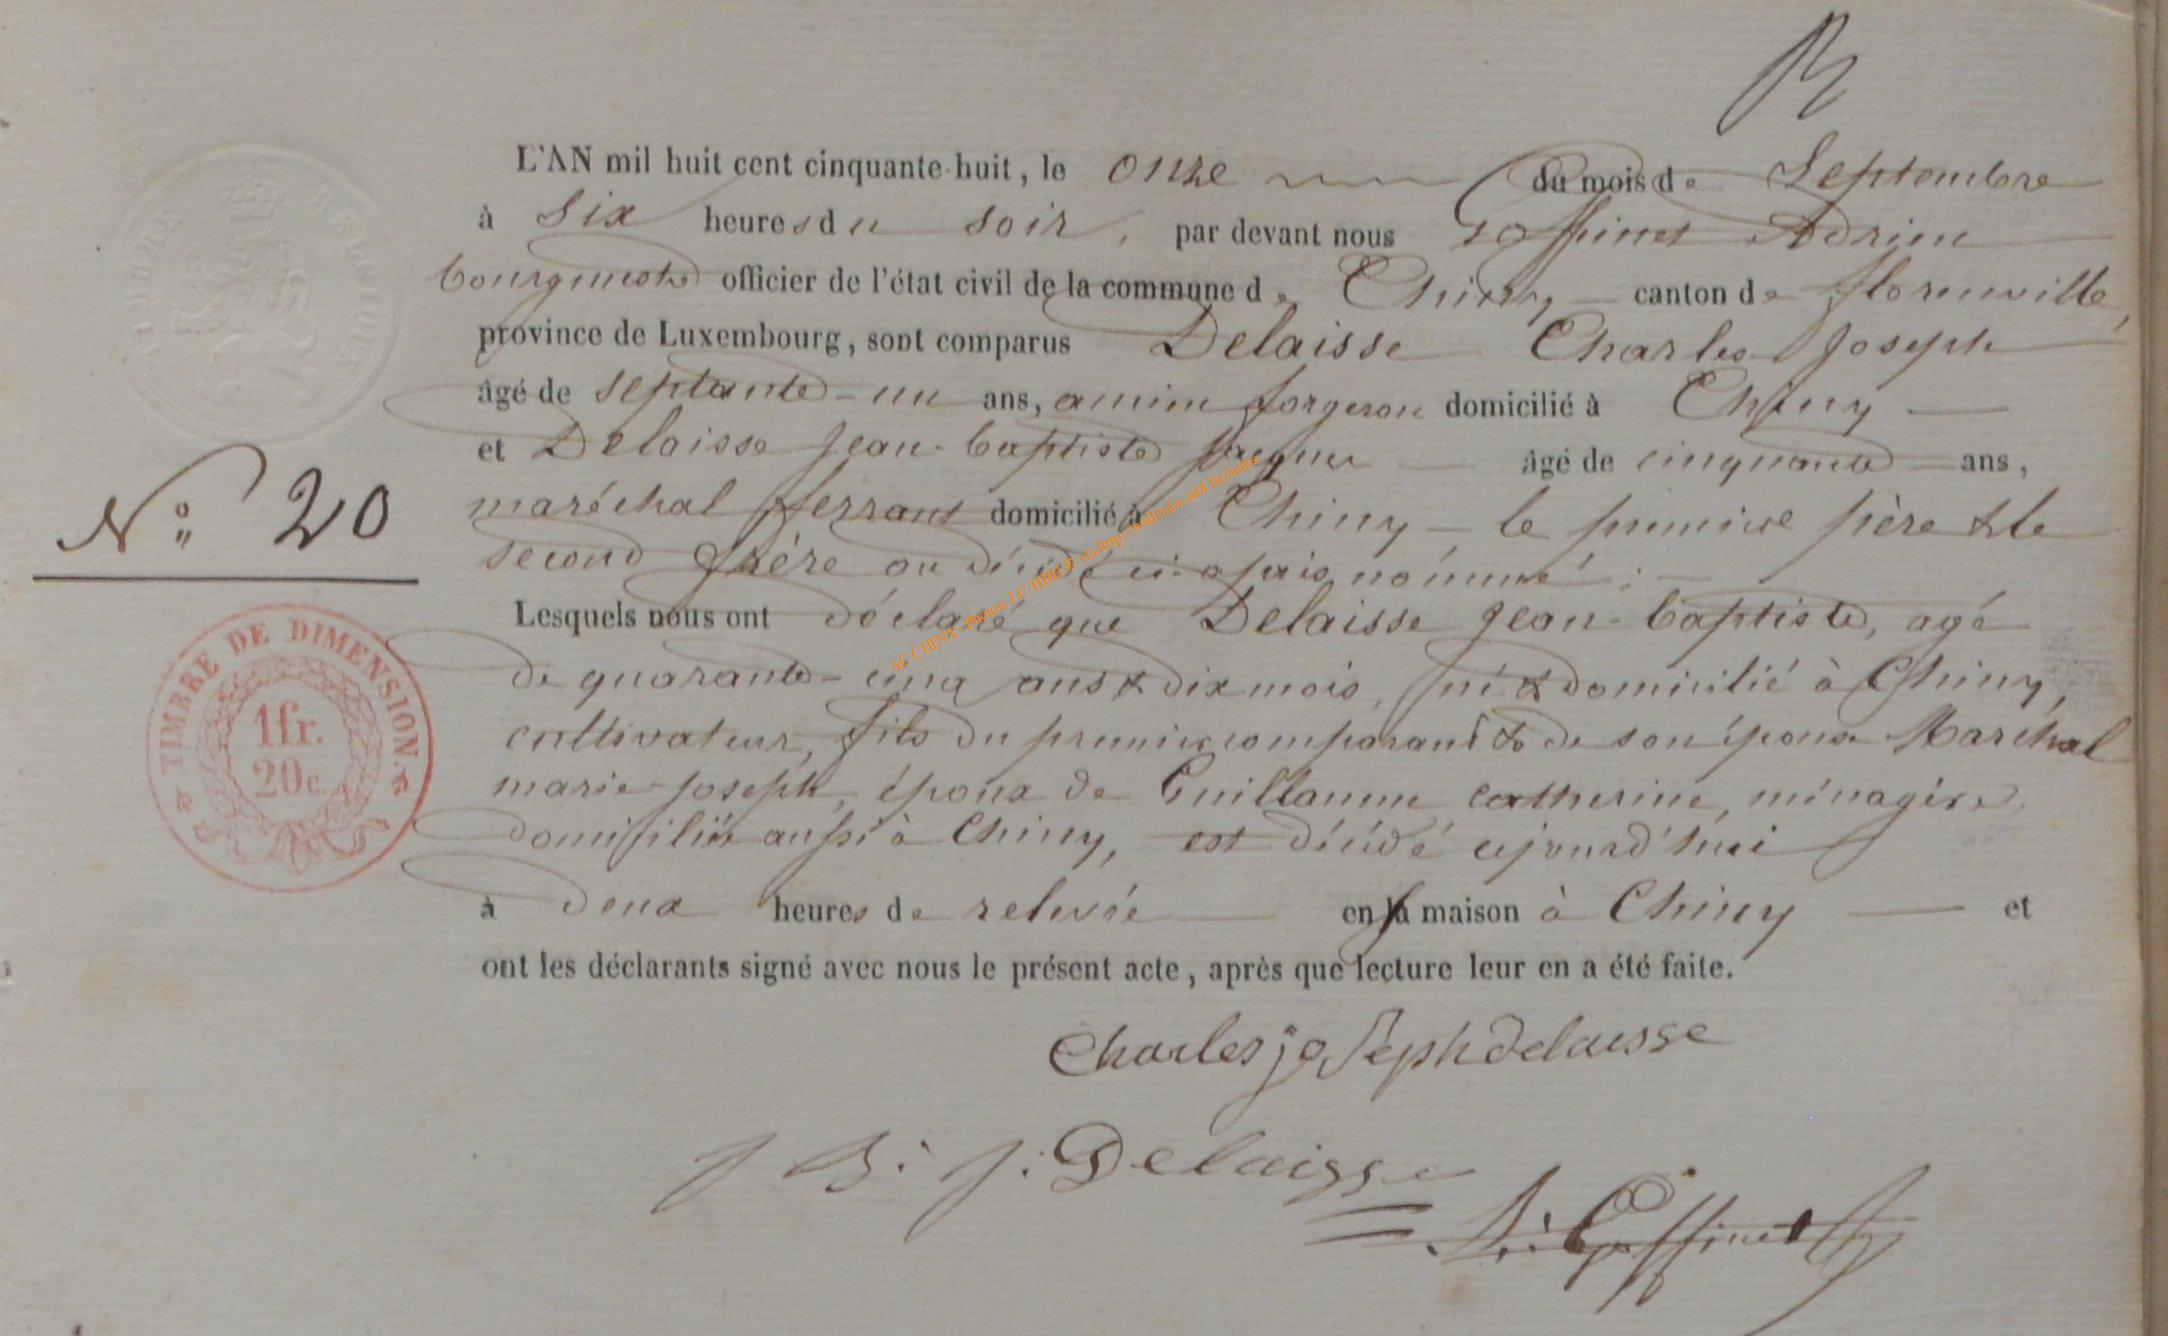 L'AN mil huit cent cinquante-huit, le onze du mois de Septembre
à Six heures du soir, par devant nous Goffinet Adrien
bourgmestre officier de l'état civil de la commune de Chiny canton de florenville,
province de Luxembourg, sont comparus Delaisse Charles Joseph
âgé de septante-un ans, ancien forgeron domicilié à Chiny
et Delaisse Jean-baptiste âgé de cinquante ans,
maréchal ferrant domicilié à Chiny - le premier père & le
second frère au décédé ci-après nommé;
N° 20
Lesquels nous ont déclaré que Delaisse Jean-baptiste, agé
de quarante-cinq ans & dix mois, né & domicilié à Chiny,
cultivateur, fils du premier comparant & de son épouse Maréchal
marie-joseph, époux de Guillaume catherine, ménagère,
domiciliée aussi à Chiny, est décédé cejourd'hui
à deux heures de relevée en sa maison à Chiny et
ont les déclarants signé avec nous le présent acte, après que lecture leur en a été faite.
Charles joseph delaisse
J B: J: Delaisse
A: Goffinet
TIMBRE DE DIMENSION.
1fr.
20c.